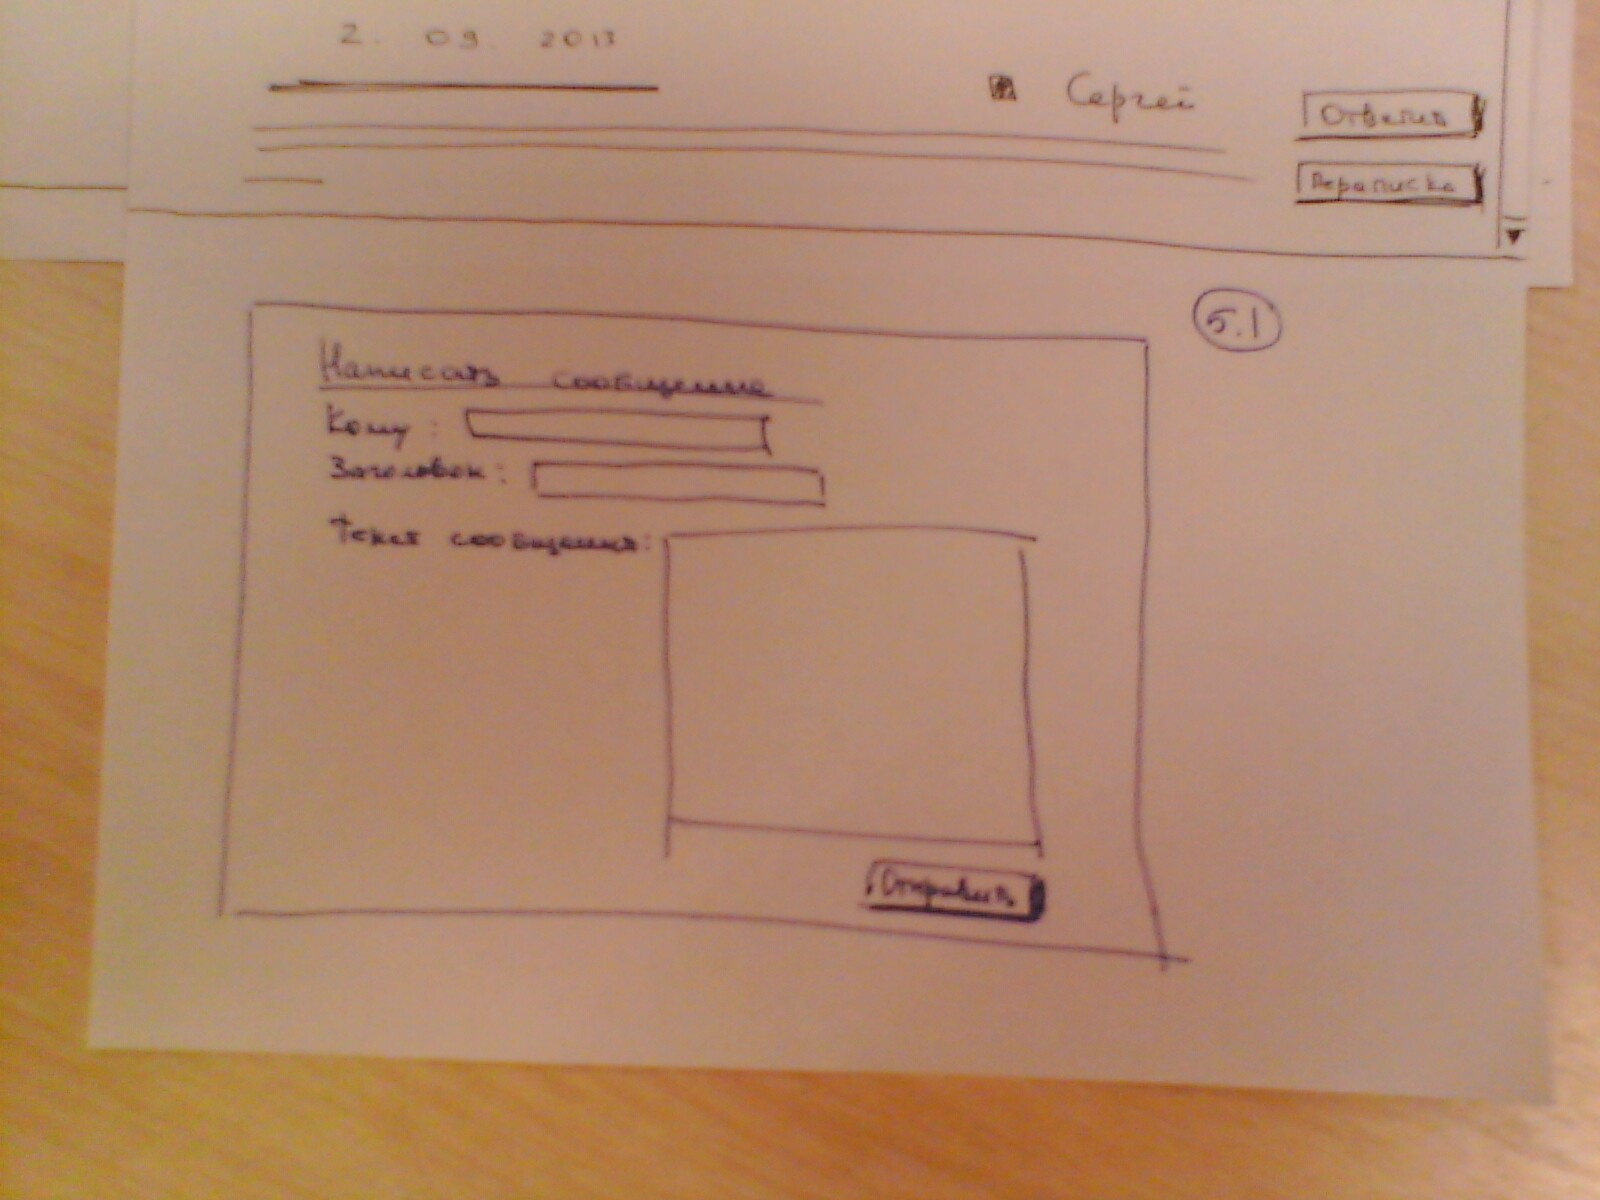 2. 09. 2013
Сергей
Ответить
Переписка
5.1
Написать сообщение
Кому:
Заголовок:
Текст сообщения:
Отправить